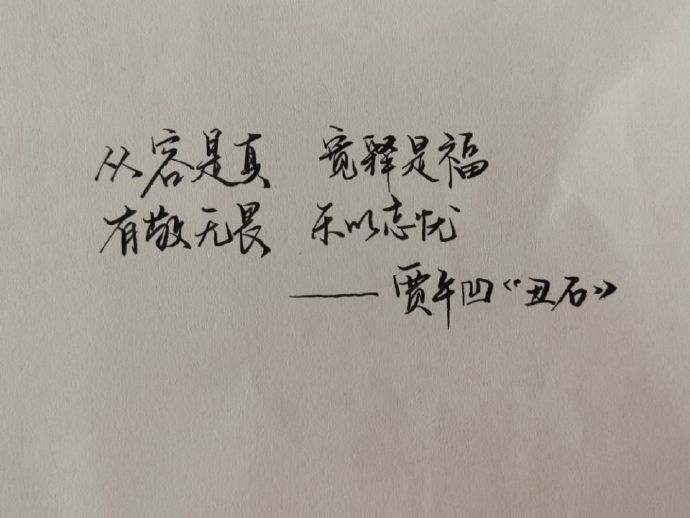 从容是真 宽释是福
有敬无畏 乐以忘忧
——贾平凹《丑石》